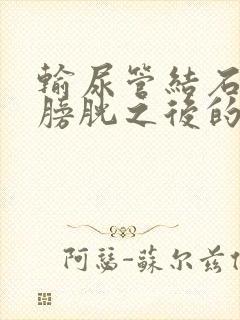 輸尿管結石
膀胱之後的
阿瑟-蘇尔兹